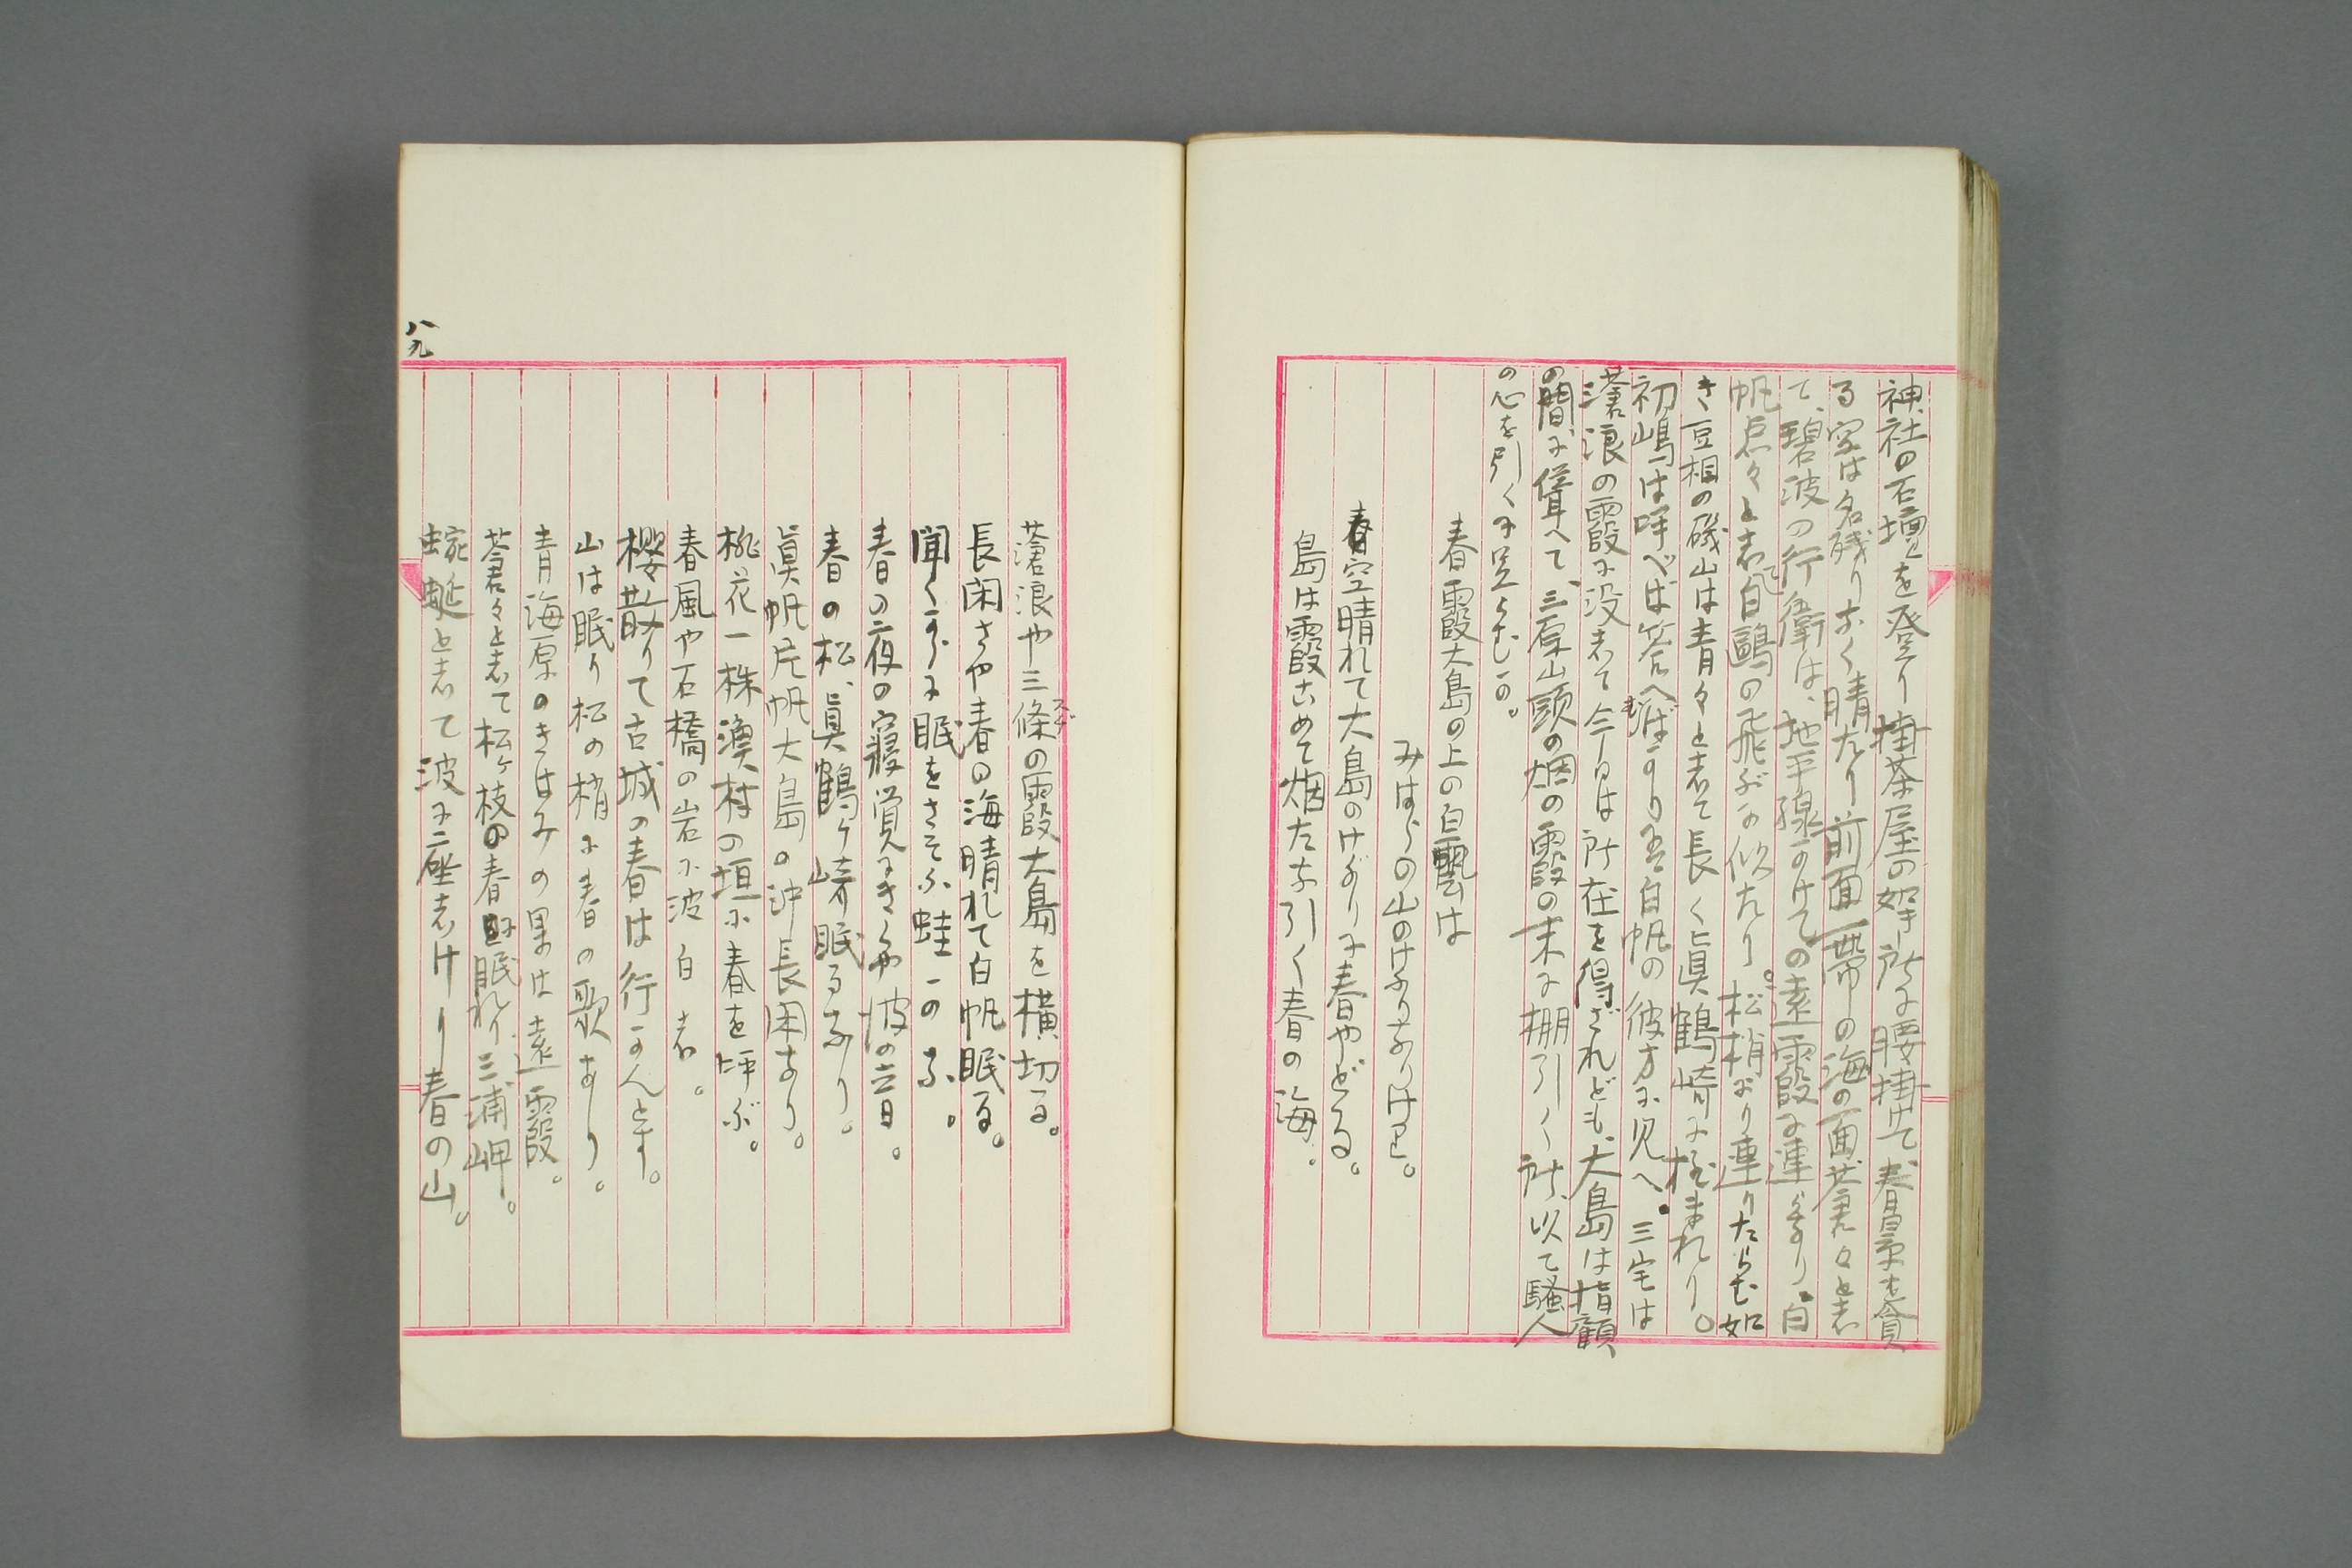 神社の石壇を登り掛茶屋の如き所に腰掛けて、春景を貪
る、空は名残りなく晴たり前面一帯の海の面蒼々とし
て、碧波の行衛は、地平線かけての遠霞に連なり、白
帆点々として白鷗の飛ぶに似たり。松梢より連りたらむ如
き豆相の磯山は青々として長く眞鶴崎に極まれり。
初嶋は呼べば答へむばかり近き白帆の彼方に見へ、三宅は
蒼浪の霞に没して今は所在を得ざれども、大島は指顧
の間に聳へて、三原山頭の烟の霞の末に棚引く所、以て騒人
の心を引くに足らむか。
春霞大島の上の白雲は
みはらの山のけふりなりけり。
春空晴れて大島のけぶりに春やどる。
島は霞こめて烟たな引く春の海。
蒼浪や三條の霞大島を横切る。
スヂ
長閑さや春の海晴れて白帆眠る。
聞くからに眠をさそふ蛙かな。
春の夜の寝覚にきくや波の音。
春の松、眞鶴ヶ崎眠るなり。
眞帆片帆大島の沖長閑なり。
桃花一株漁村の垣に春を呼ぶ。
春風や石橋の岩に波白し。
櫻散りて古城の春は行かんとす。
山は眠り松の梢に春の歌あり。
青海原のきはみの果は遠霞。
蒼々として松ヶ枝の春眠れり三浦岬。
蜿蜒として波に座しけり春の山。
八九